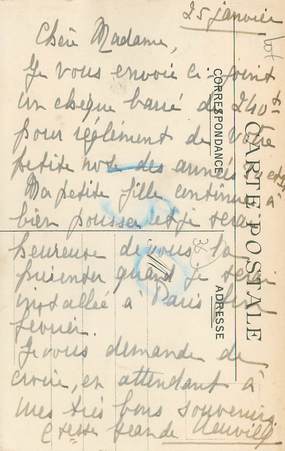 25 janvier
Chère Madame,
Je vous envoie ci joint
un chèque barré de 240
pour réglement de votre
petite note des années
Ma petite fille continue à
bien pousser et je serai
heureuse de vous la
présenter quand je serai
installée à Paris fin
février.
Je vous demande de
croire, en attendant à
mes très bons souvenirs
Ctesse Jean de Neuville
CARTE POSTALE
CORRESPONDANCE
ADRESSE